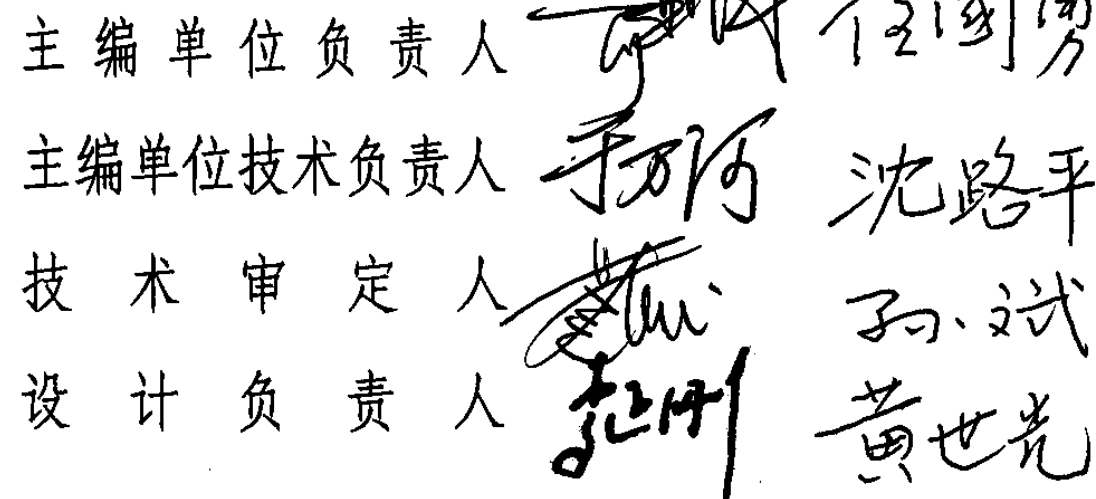 主编单位负责人 任国勇
主编单位技术负责人 于万河 沈路平
技术审定人 孙斌
设计负责人 黄世光